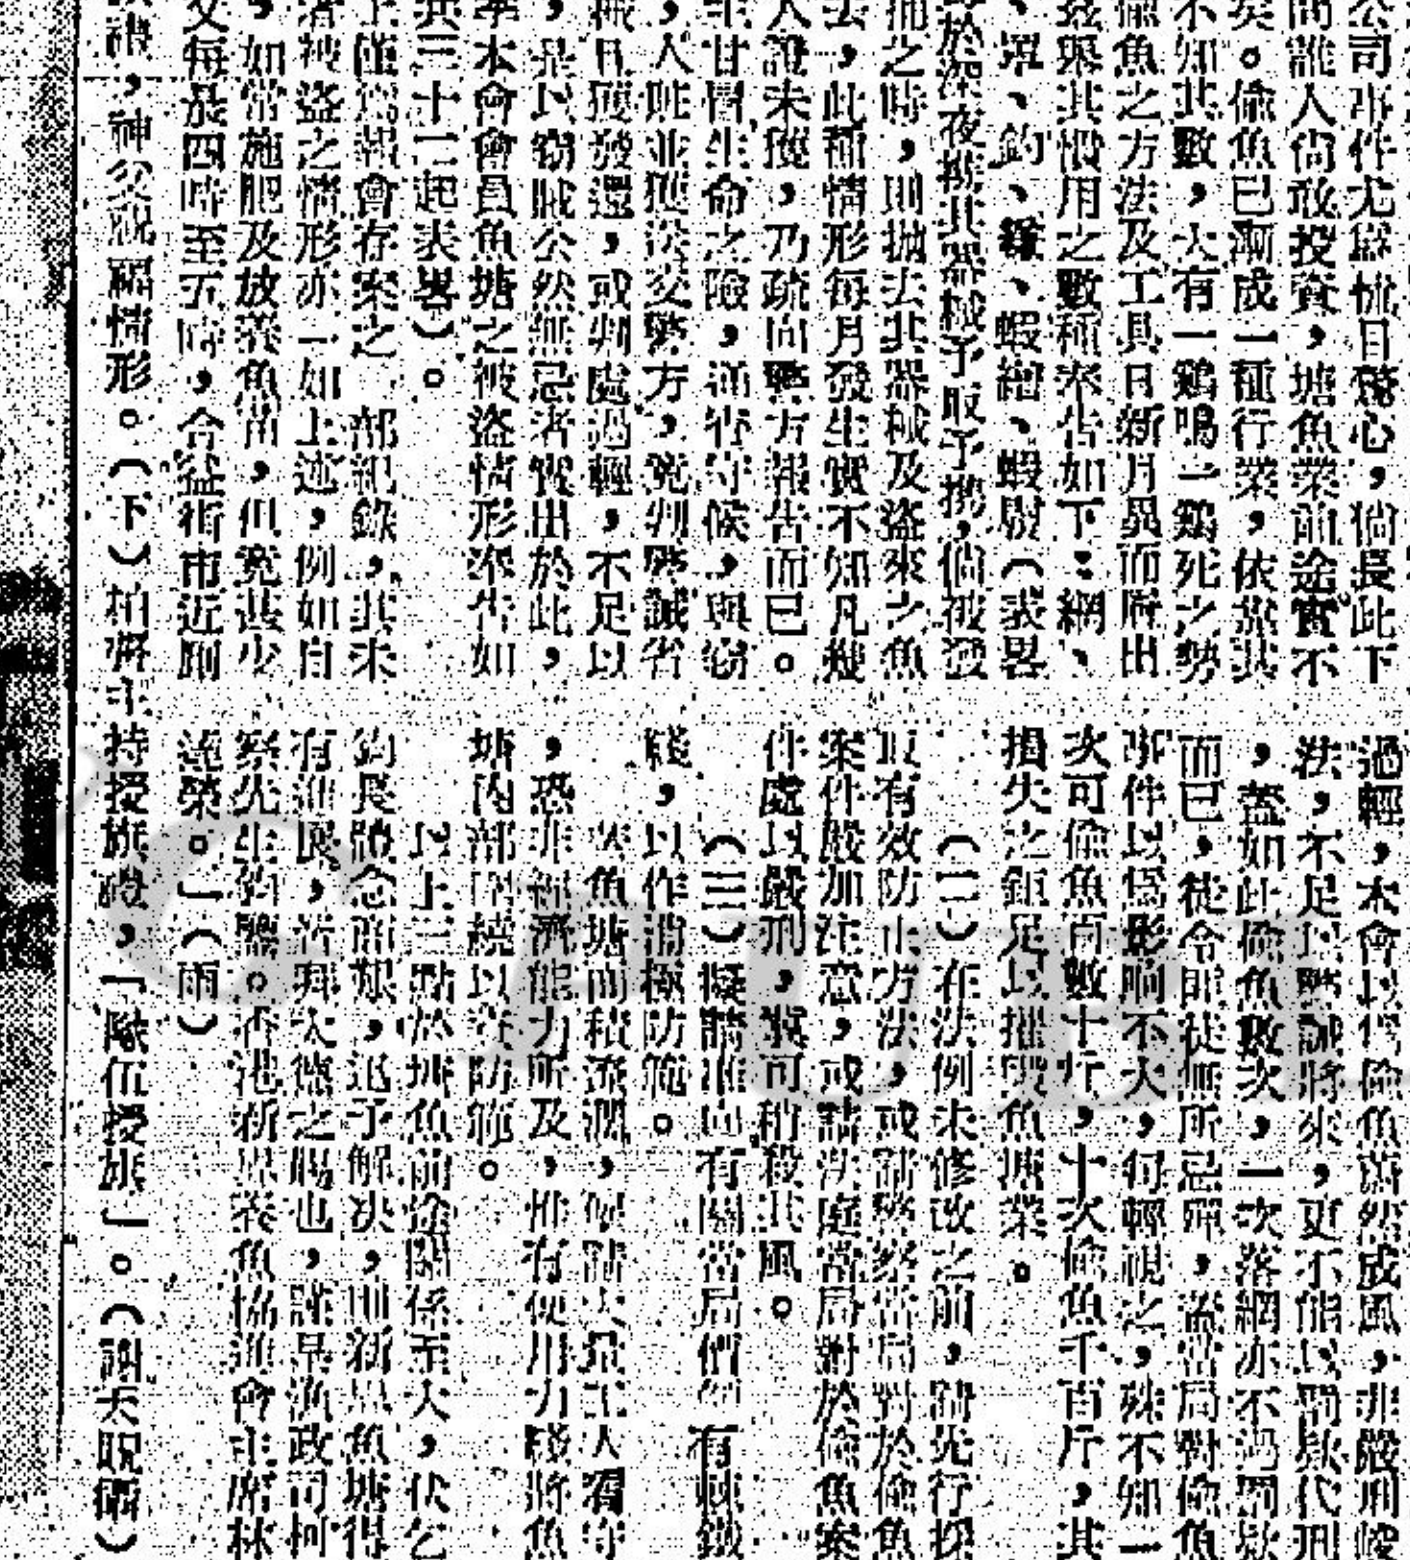 公司事件尤爲怵目驚心，倘長此下
問誰人尙敢投資，塘魚業前途實不
矣。偷魚已漸成一種行業，依靠其
不知其數，大有一鷄鳴一鷄死之勢
偷魚之方法及工具日新月異而層出
茲舉其慣用之數種奉告如下：網、
、罩、釣、蝦繒、蝦𦊓（表畧
於深夜携其器械予取予携，倘被發
捕之時，則拋去其器械及盜來之魚
去，此種情形每月發生實不知凡幾
人證未獲，乃疏向警方報告而已。
甘冒生命之險，通宵守候，與竊
，人賍並獲送交警方，竟判懲誡省
械具獲發還，或判處過輕，不足以
，是以竊賊公然無忌者實出於此，
本會會員魚塘之被盜情形奉告如
共三十一起表畧）。
僅爲報會存案之 部紀錄，其未
被盜之情形亦一如上述，例如自
，如常施肥及放養魚苗，但竟甚少
每晨四時至五時，令益街市近剛
，神父祝福情形。（下）柏 主持授旗禮，「隊伍授旗」。（謝天眖攝）
過輕，本會以爲偷魚蔚然成風，非嚴刑峻
法，不足以警誡將來，更不能以罰欵代刑
，蓋如此偷魚數次，一次落網亦不過罰欵
而已，徒令匪徒無所忌憚，當局對偷魚
事件以爲影响不大，每輕視之，殊不知一
次可偷魚百數十斤，十次偷魚千百斤，其
損失之鉅足以摧毀魚塘業。
（二）在法例未修改之前，請先行採
取有效防止方法，或請警察當局對於偷魚
案件嚴加注意，或請法庭當局對於偷魚案
件處以嚴刑，冀可稍殺其風。
（三）擬請准向有關當局 有棘鐵
綫，以作消極防範。
魚塘面積遼濶，倘請大量工人看守
，恐非經濟能力所及，惟有使用力綫將魚
塘內部圍繞以資防範。
以上三點於塘魚前途關係至大，伏乞
鈞長體念商艱，迅予解决，則新界魚塘得
有進展，皆拜大德之賜也，謹呈漁政司柯
察先生鈞鑒。香港新界養魚協進會主席林
蓮榮。」（雨）